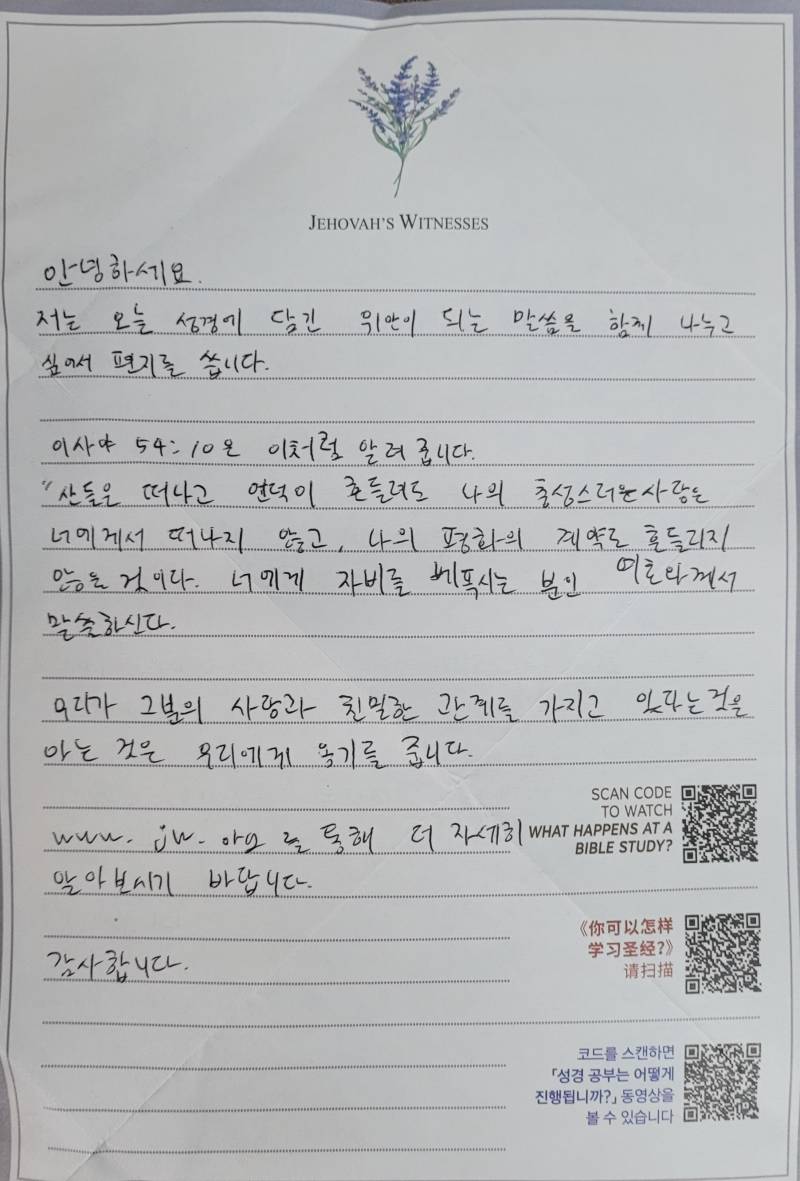 JEHOVAH'S WITNESSES
안녕하세요.
저는 오늘 성경에 담긴 위안이 되는 말씀을 함께 나누고
싶어서 편지를 씁니다.
이사야 54:10은 이처럼 알려 줍니다.
"산들은 떠나고 언덕이 흔들려도 나의 충성스러운 사랑은
너에게서 떠나지 않고, 나의 평화의 계약도 흔들리지
않을 것이다. 너에게 자비를 베푸시는 분인 여호와께서
말씀하신다.
우리가 그분의 사랑과 친밀한 관계를 가지고 있다는것을
아는 것은 우리에게 용기를 줍니다.
SCAN CODE
TO WATCH
WHAT HAPPENS AT A
BIBLE STUDY?
www. jw. 를 통해 더 자세히
알아보시기 바랍니다.
《你可以怎样
学习圣经?》
请扫描
감사합니다.
코드를 스캔하면
「성경 공부는 어떻게
진행됩니까?」 동영상을
볼 수 있습니다